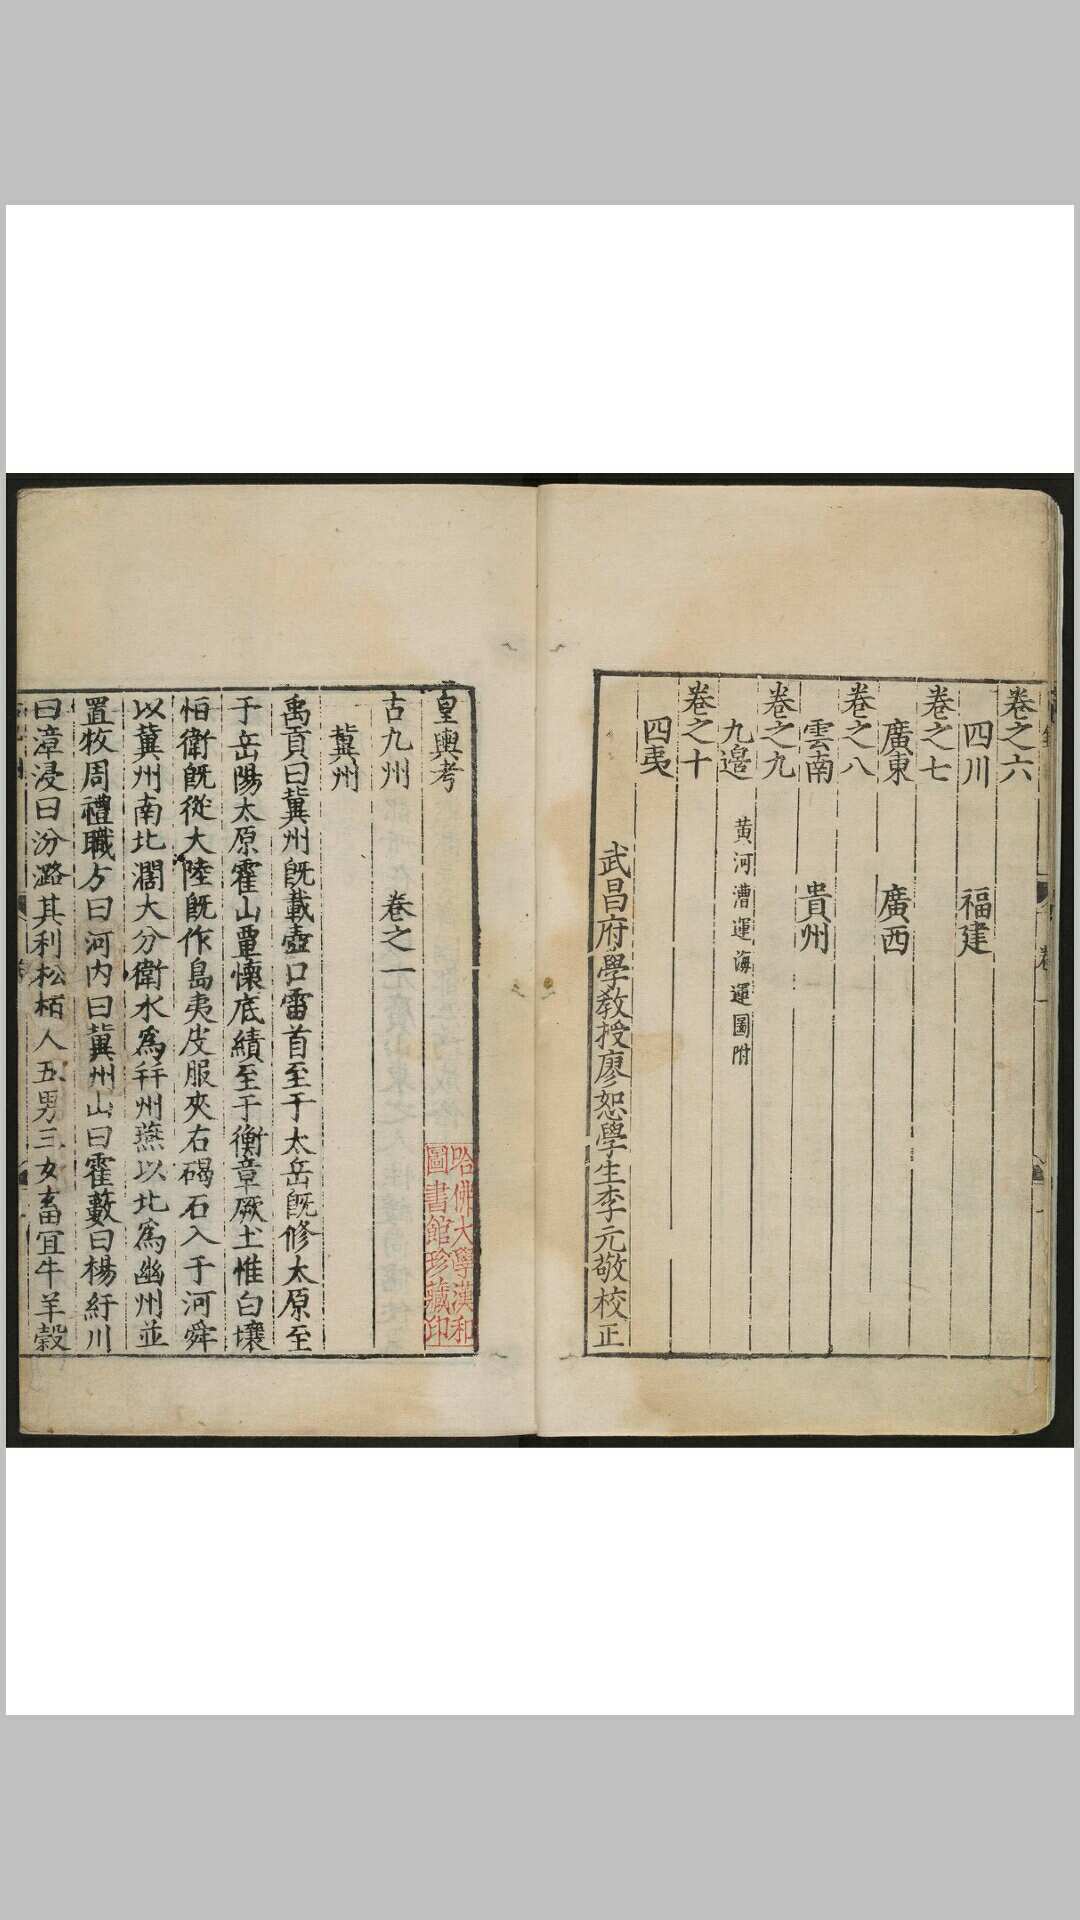 卷之六
四川　福建
卷之七
廣東　廣西
卷之八
雲南　貴州
卷之九
九邊　黄河漕運海運圖附
卷之十
四夷
武昌府學教授廖恕學生李元敬校正
皇輿考
古九州　卷之一
冀州
禹貢曰冀州既載壺口雷首至于太岳既修太原至
于岳陽太原霍山覃懷底績至于衡章厥土惟白壤
恒衛既從大陸既作島夷皮服夾右碣石入于河舜
以冀州南北濶大分衛水爲幷州燕以北爲幽州並
置牧周禮職方曰河内曰冀州山曰霍藪曰楊紆川
曰漳浸曰汾潞其利松栢人五男三女畜宜牛羊穀
哈佛大學漢和
圖書館珍藏印